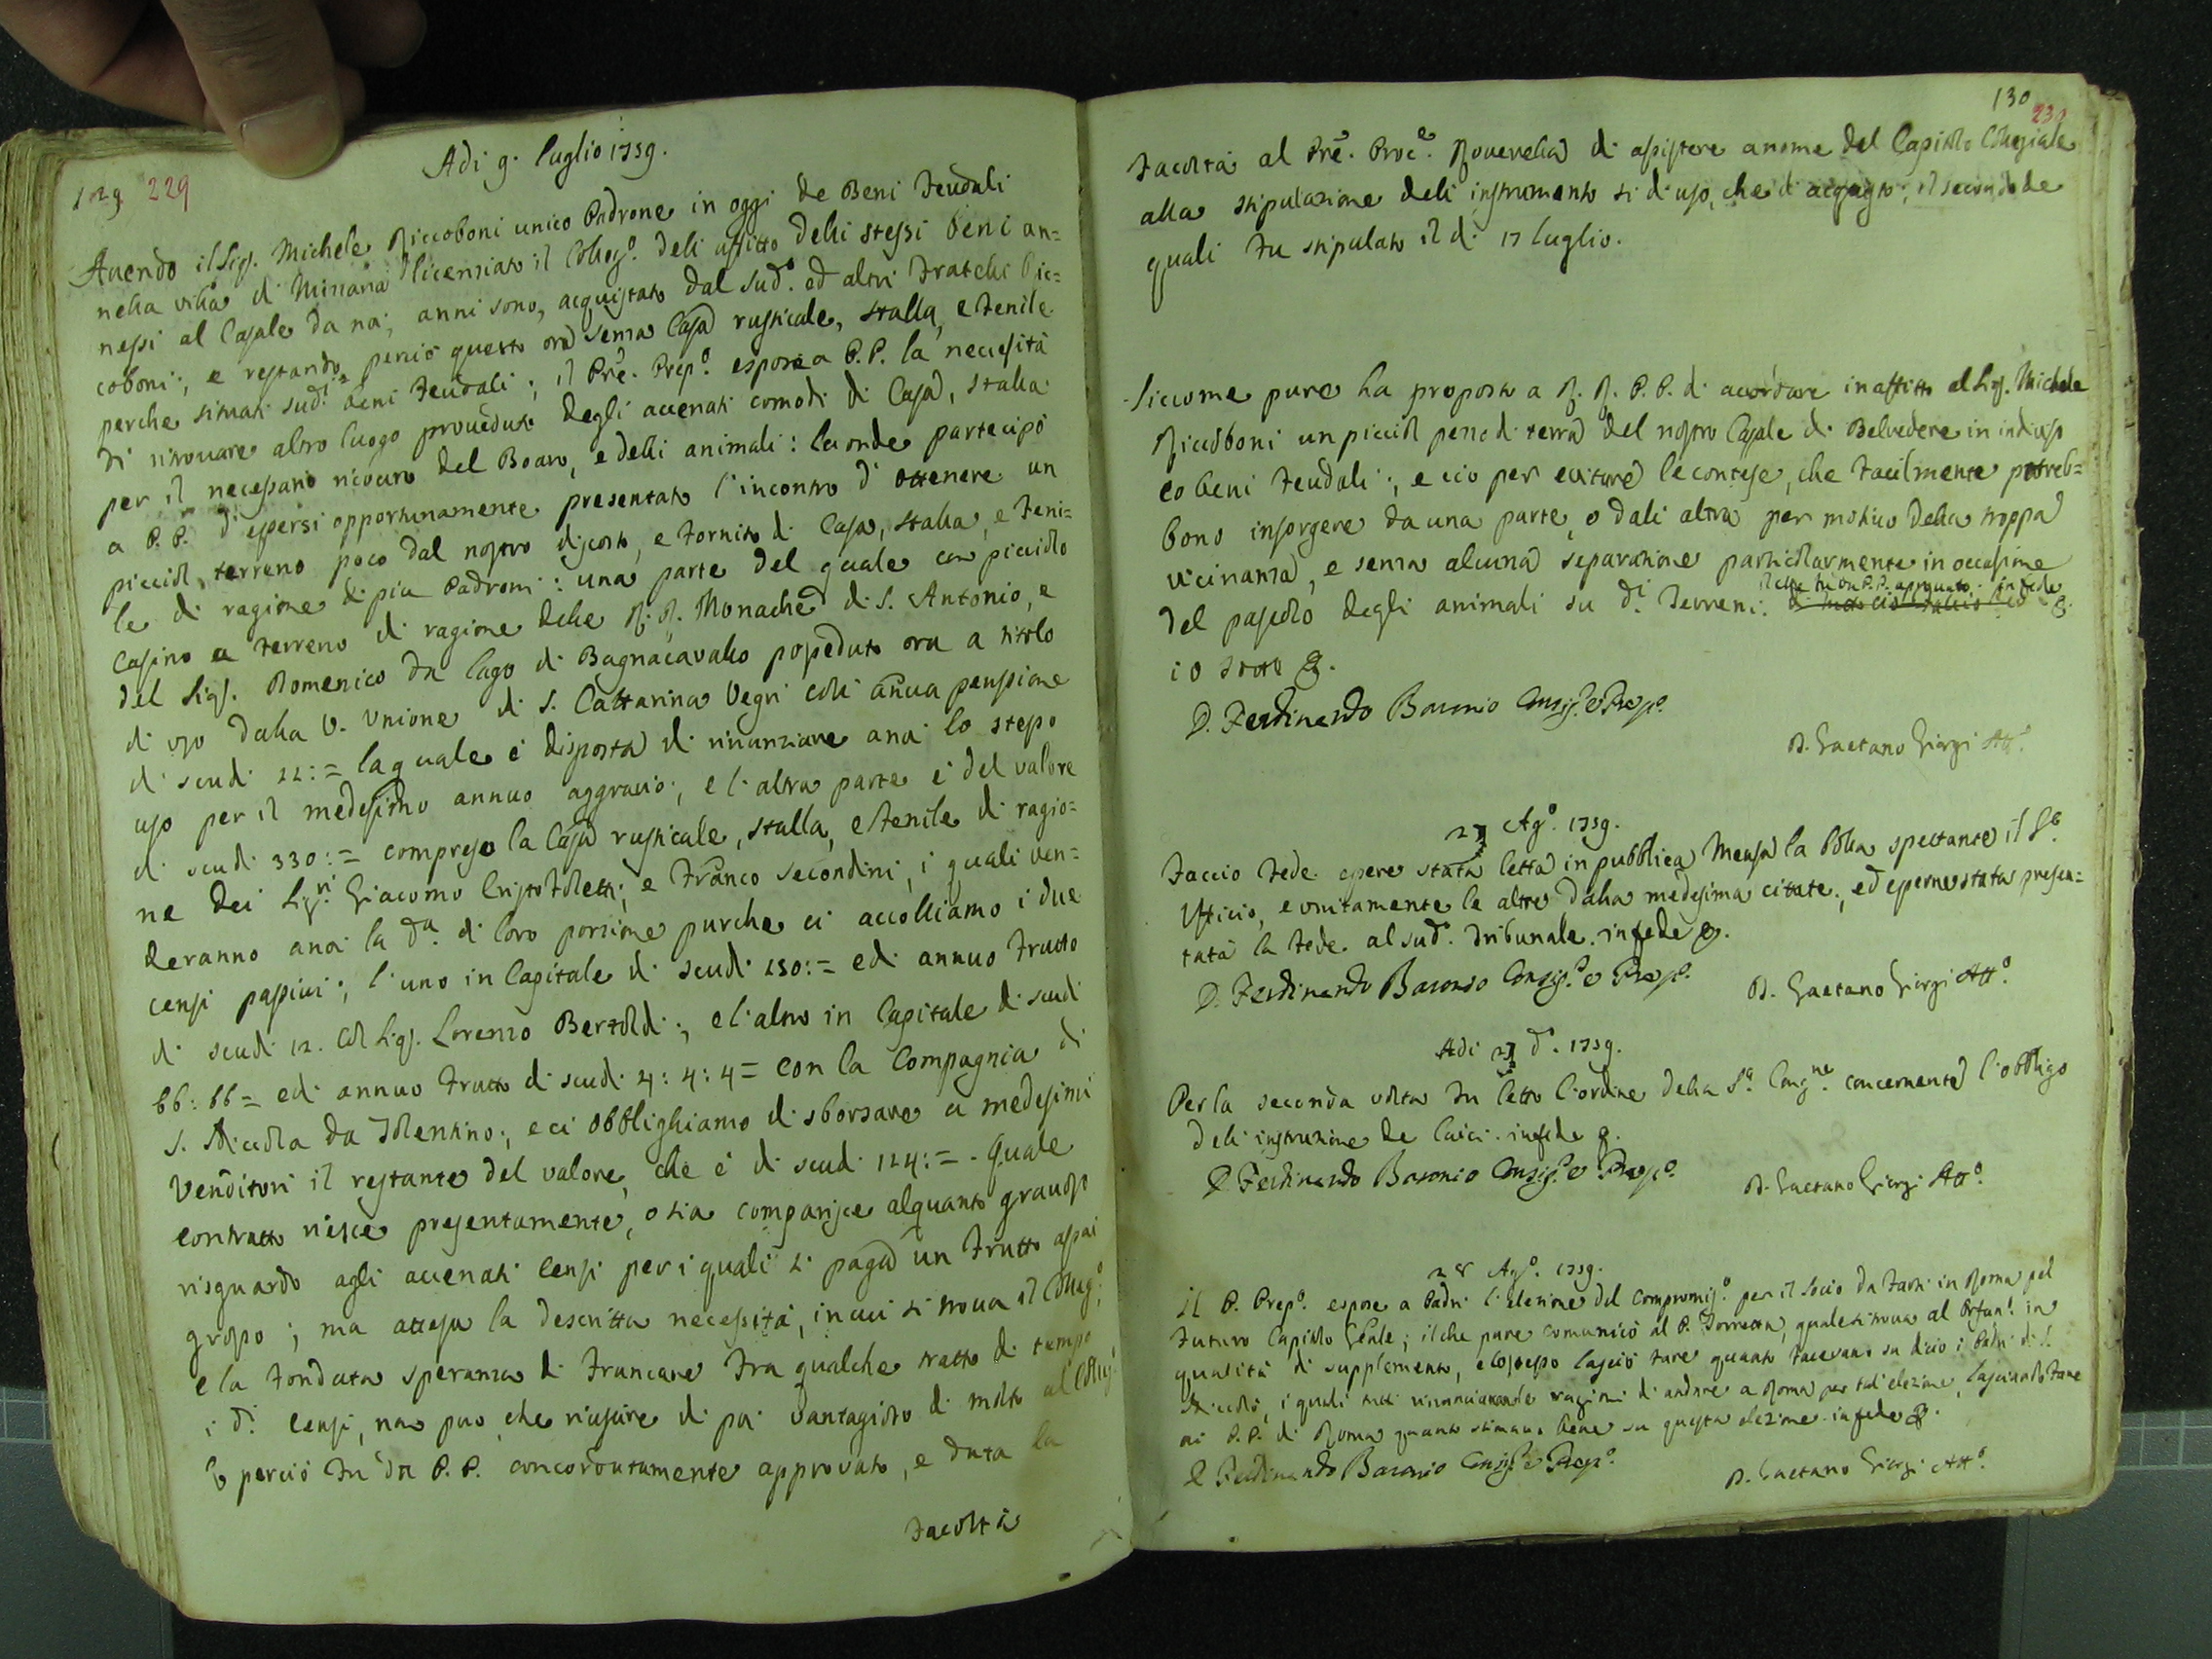 129 229
Adi 9. luglio 1759.
Avendo il Sig. Michele Riccoboni unico Padrone in oggi de Beni feudali
nella villa di Minana licenziato il Colleg.o dell' affitto delli stessi beni an=
nessi al Casale da noi, anni sono, acquistato dal sud.o ed altri fratelli Ric=
coboni; e restando perciò questo ora senza Casa rusticale, stalla, e fenile
perche situati sud.i beni feudali; il Prē. Prep.o espose a P.P. la necessità
di ritrovare altro luogo proveduto degli accenati comodi di Casa, stalla
per il necessario ricovero del Boaro, e delli animali: laonde partecipò
a P.P. d' essersi opportunamente presentato l' incontro d' ottenere un
picciol terreno poco dal nostro discosto, e fornito di Casa, stalla, e feni=
le di ragione di più Padroni: una parte del quale con picciolo
Casino e terreno di ragione delle R.R. Monache di S. Antonio, e
del Sig. Domenico da lago di Bagnacavallo posseduto ora a titolo
di uso dalla V. Unione di S. Cattarina Vegri coll' anua pensione
di scudi 22:= la quale è disposta di rinunziare a noi lo stesso
uso per il medesimo annuo aggravio; e l' altra parte è del valore
di scudi 330:= compreso la Casa rusticale, stalla, e fenile di ragio=
ne dei Sig.ri Giacomo Cristofoletti, e Franco Secondini, i quali ven=
deranno a noi la d.a di loro porzione purche ci accolliamo i due
censi passivi; l' uno in Capitale di scudi 150:= e di annuo frutto
di scudi 12. col Sig. Lorenzo Bertoldi; e l' altro in Capitale di scudi
66:66= e di annuo frutto di scudi 4:4:4= con la Compagnia di
S. Niccola da Tolentino; e ci obblighiamo di sborsare a medesimi
Venditori il restante del valore, che è di scudi 124:=. Quale
contratto riesce presentamente, o sia comparisce alquanto gravoso
risguardo agli accenati censi per i quali si paga un frutto assai
grosso; ma attesa la descritta necessità, in cui si trova il Colleg.o,
e la fondata speranza di francare fra qualche tratto di tempo
i d.i censi, non puo che riuscire di poi vantagioso di molto al Colleg.o
E perciò fu da P.P. concordatamente approvato, e data la
facoltà
130
231
facoltà al Prē. Proc.e Roverella di assistere a nome del Capitolo Collegiale
alla stipulazione dell' instrumento si d' uso, che d' acquisto; il secondo de
quali fu stipulato il dì 17 luglio.
Siccome pure ha proposto a R.R. P.P. di accordare in affitto al Sig. Michele
Riccoboni un picciol pezzo di terra del nostro Casale di Belvedere in indiviso
co beni feudali; e ciò per evitare le contese, che facilmente potreb=
bono insorgere da una parte, o dall' altra per motivo della troppa
vicinanza, e senza alcuna separazione particolarmente in occasione
del pascolo degli animali su d.i terreni. il che fu da P.P. approvato. in fede
io sotto &.
D. Ferdinando Baronio Consig.e e Prep.o
D. Gaetano Giorgi Att.o
27 Ag.o 1759.
Faccio fede essere stata letta in pubblica Mensa la bolla spettante il S.o
Ufficio, e unitamente le altre dalla medesima citate, ed esserne stata presen=
tata la fede al sud.o Tribunale. in fede &.
D. Ferdinando Baronio Consig.e e Prep.o
D. Gaetano Giorgi Att.o
Adi 27 d.o 1759.
Per la seconda volta fu letto l' ordine della S.a Cong.ne concernente l' obbligo
dell' instruzione de laici. in fede &.
D. Ferdinando Baronio Consig.e e Prep.o
D. Gaetano Giorgi Att.o
28 Ag.o 1759.
Il P. Prep.o espose a Padri l' elezione del Compromiss.o per il Socio da farsi in Roma pel
futuro Capitolo Gēnale; il che pure comunicò al P. Torretta, quale si trova al Orfan.o in
qualità di supplemento, e lo stesso lasciò fare quanto facevano su di ciò i Padri di S.
Niccolò, i quali tutti rinunciarono le ragioni di andare a Roma per tal' elezione, lasciando fare
ai P.P. di Roma quanto stimano bene su questa elezione. in fede &.
D. Ferdinando Baronio Consig.e e Prep.o
D. Gaetano Giorgi Att.o